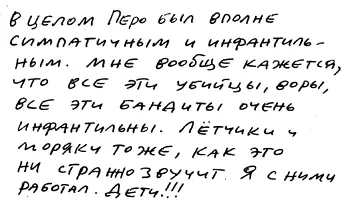 В ЦЕЛОМ ПЕРО БЫЛ ВПОЛНЕ
СИМПАТИЧНЫМ И ИНФАНТИЛЬ-
НЫМ. МНЕ ВООБЩЕ КАЖЕТСЯ,
ЧТО ВСЕ ЭТИ УБИЙЦЫ, ВОРЫ,
ВСЕ ЭТИ БАНДИТЫ ОЧЕНЬ
ИНФАНТИЛЬНЫ. ЛЁТЧИКИ И
МОРЯКИ ТОЖЕ, КАК ЭТО
НИ СТРАННО ЗВУЧИТ. Я С НИМИ
РАБОТАЛ. ДЕТИ!!!